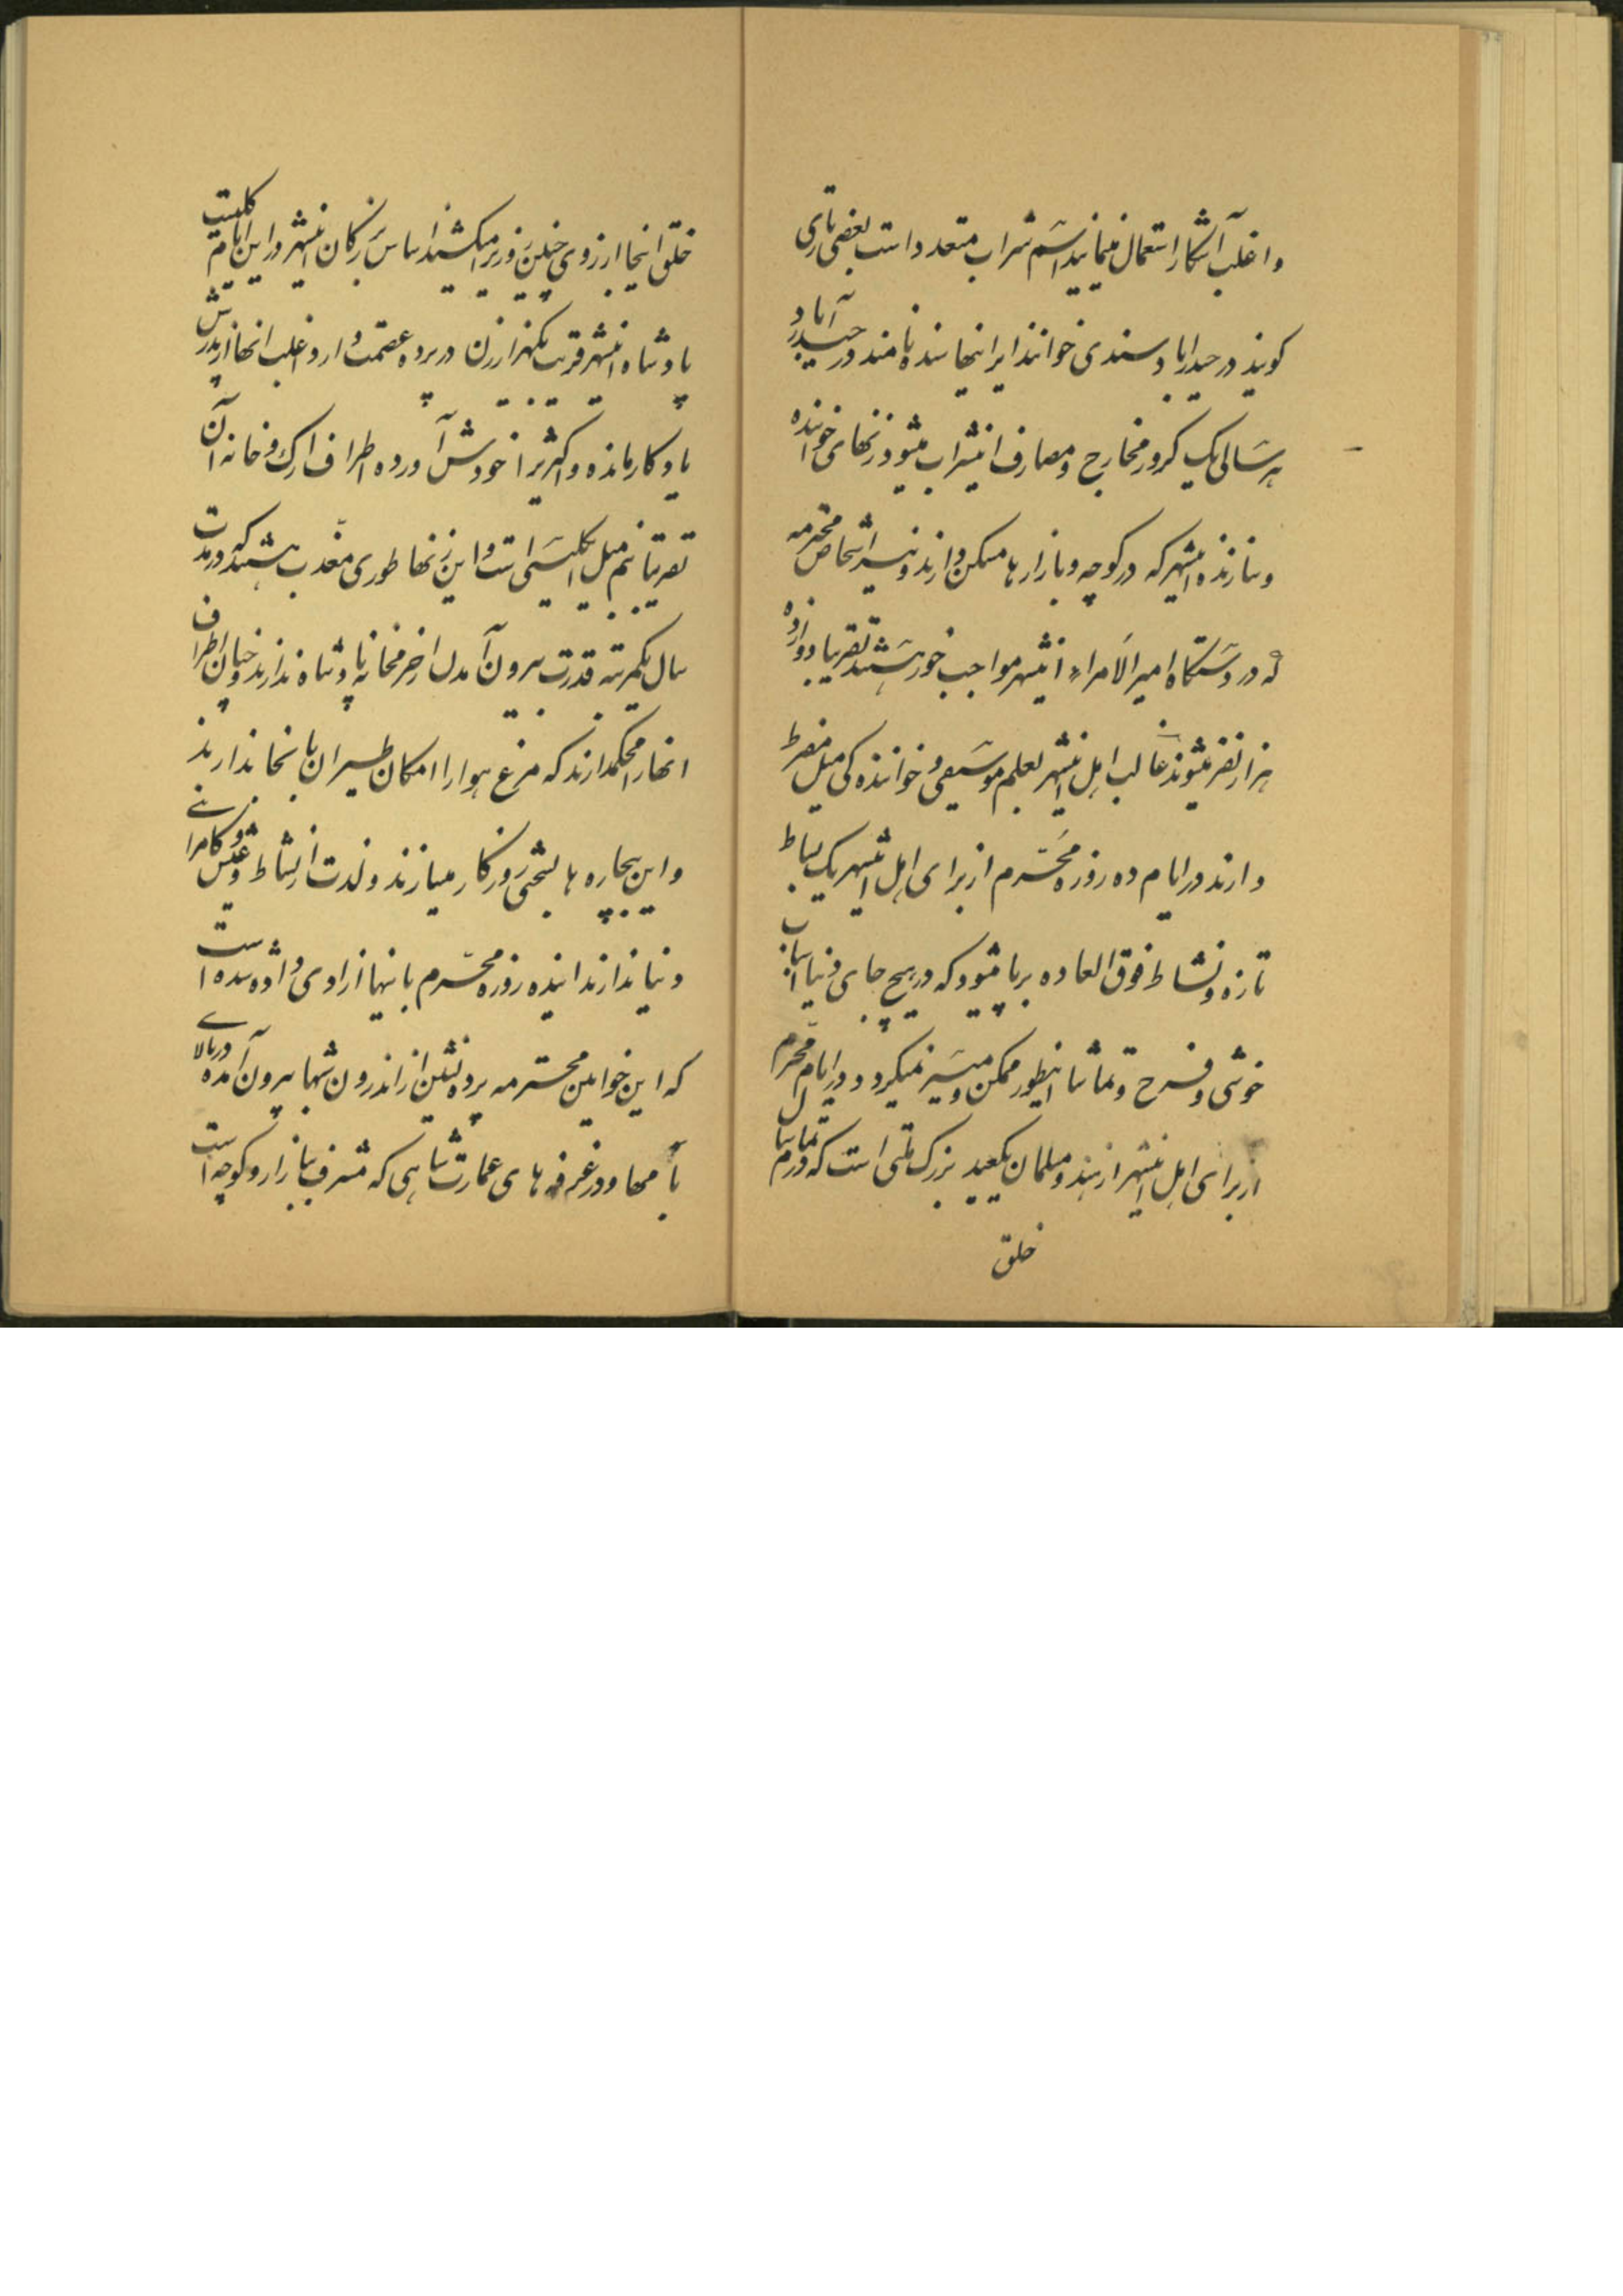 و اغلب آشکارا استعمال مینمایند اسم شراب متعدد است بعضی تاری
کویند در حیدراباد سندی خوانند ایرا اینجا سنده نامند در حیدرآباد
هر سالی یک کرور مخارج و مصارف اینشراب میشود زنهای خواننده
و سازنده اینشهر که در کوچه و بازارها مسکن دارند و نیز اشخاص محترمه
که در دستکاه امیر الامراء اینشهر مواجب خور هستند تقریبا دوازده
هزار نفر میشوند غالب اهل اینشهر بعلم موسیقی و خوانندکی میل مفرط
دارند در ایام ده روزه محرم از برای اهل اینشهر یک بساط
تازه و نشاط فوق العاده برپا میشود که در هیچ جای دنیا اسباب
خوشی و فرح و تماشا اینطور ممکن و میسر نمیکردد و در ایام محرم
از برای اهل اینشهر از هند و مسلمان یکعید بزرک ملتی است که تمام سال
خلق
خلق اینجا ارزوی چنین روزیرا میکشیدند اساس بزرکان اینشهر در این ایام کلیست
پادشاه اینشهر قریب یکهزار زن در پرده عصمت دارد و اغلب انها از پدرش
یادکار مانده و اکثریرا خودش آورده اطراف ارک و خانه آن
تقریبا نیم میل انکلیسی است و این زنها طوری معذب هستند که در مدت
سال یکمرتبه قدرت بیرون آمدن از حرمخانه پادشاه ندارند و چنان اطراف
انها را محکمدارند که مرغ هوا را امکان طیران بانجا ندارند
و این بیچاره ها بسختی روزکار میسازند و لذت از نشاط و عیش و کامرانی
دنیا ندارند اینده روزه محرم بانها ازادی داده شده است
که این خوانین محترمه پرده نشین از اندرون شبها بیرون آمده در بالای
بامها و در غرفه های عمارت شاهی که مشرف ببازار و کوچه است